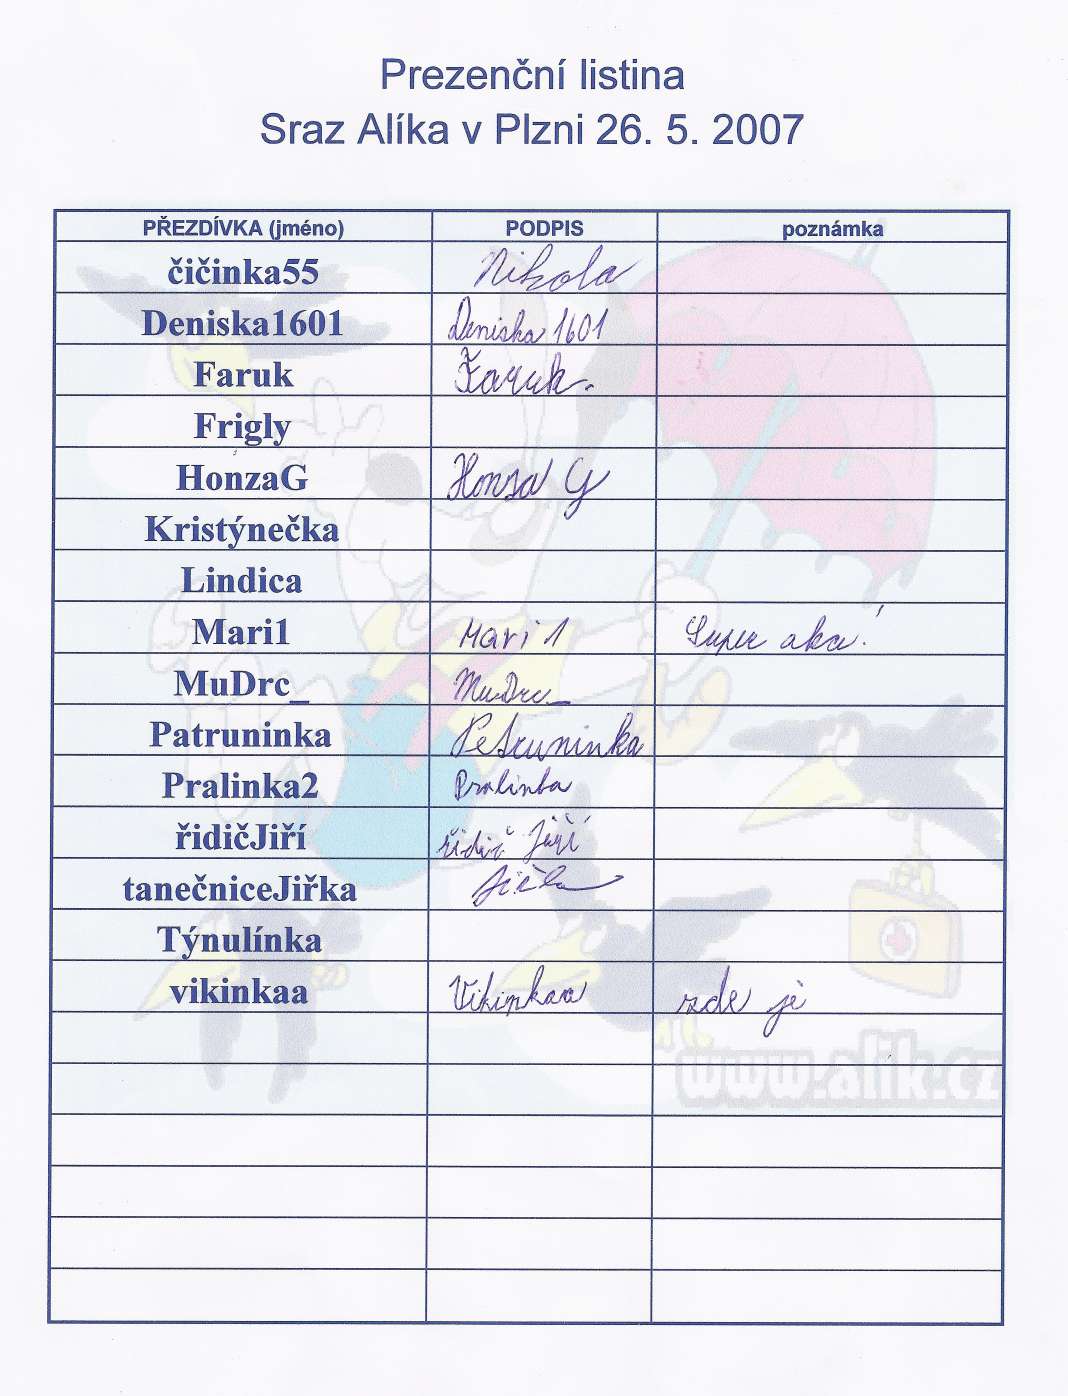 Prezenční listina
Sraz Alíka v Plzni 26. 5. 2007
PŘEZDÍVKA (jméno) PODPIS poznámka
čičinka55 Nikola
Deniska1601 Deniska 1601
Faruk Faruk.
Frigly
HonzaG Honza G
Kristýnečka
Lindica
Mari1 Mari 1 Super akce!
MuDrc_ MuDrc_
Patruninka Petruninka
Pralinka2 Pralinka
řidičJiří řidič Jiří
tanečniceJiřka Jiřka
Týnulínka
vikinkaa Vikinkaa zde je
www.alik.cz